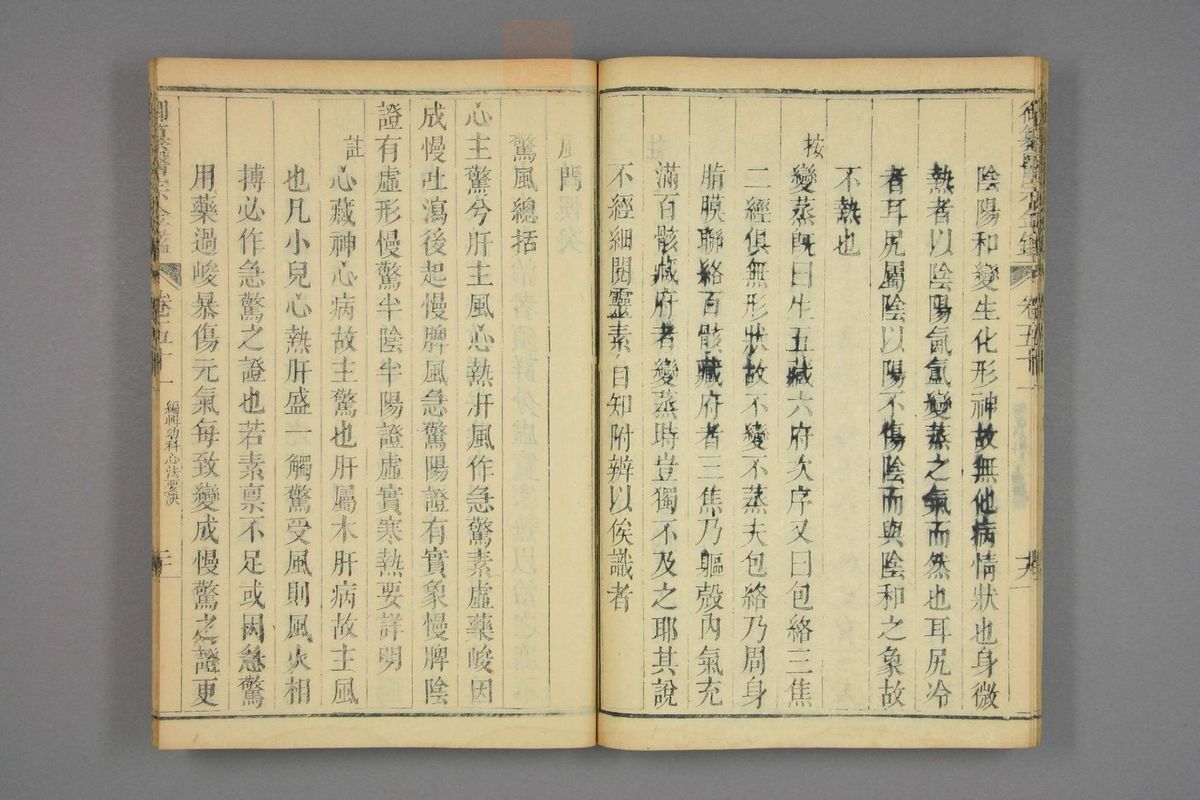 御纂醫宗金鑑 卷五十
陰陽和變生化形神故無他病情狀也身微
熱者以陰陽氤氳變蒸之氣而然也耳尻冷
者耳尻屬陰以陽不傷陰而與陰和之象故
不熱也
按
變蒸旣曰生五藏六府次序又曰包絡三焦
二經俱無形狀故不變不蒸夫包絡乃周身
脂膜聯絡百骸藏府者三焦乃軀殼內氣充
滿百骸藏府者變蒸時豈獨不及之耶其說
不經細閱靈素自知附辨以俟識者
風門
驚風總括
心主驚兮肝主風心熱肝風作急驚素虛藥峻因
成慢吐瀉後起慢脾風急驚陽證有實象慢脾陰
證有虛形慢驚半陰半陽證虛實寒熱要詳明
註
心藏神心病故主驚也肝屬木肝病故主風
也凡小兒心熱肝盛一觸驚受風則風火相
搏必作急驚之證也若素稟不足或因急驚
用藥過峻暴傷元氣每致變成慢驚之證更
御纂醫宗金鑑 卷五十一 編輯幼科心法要訣